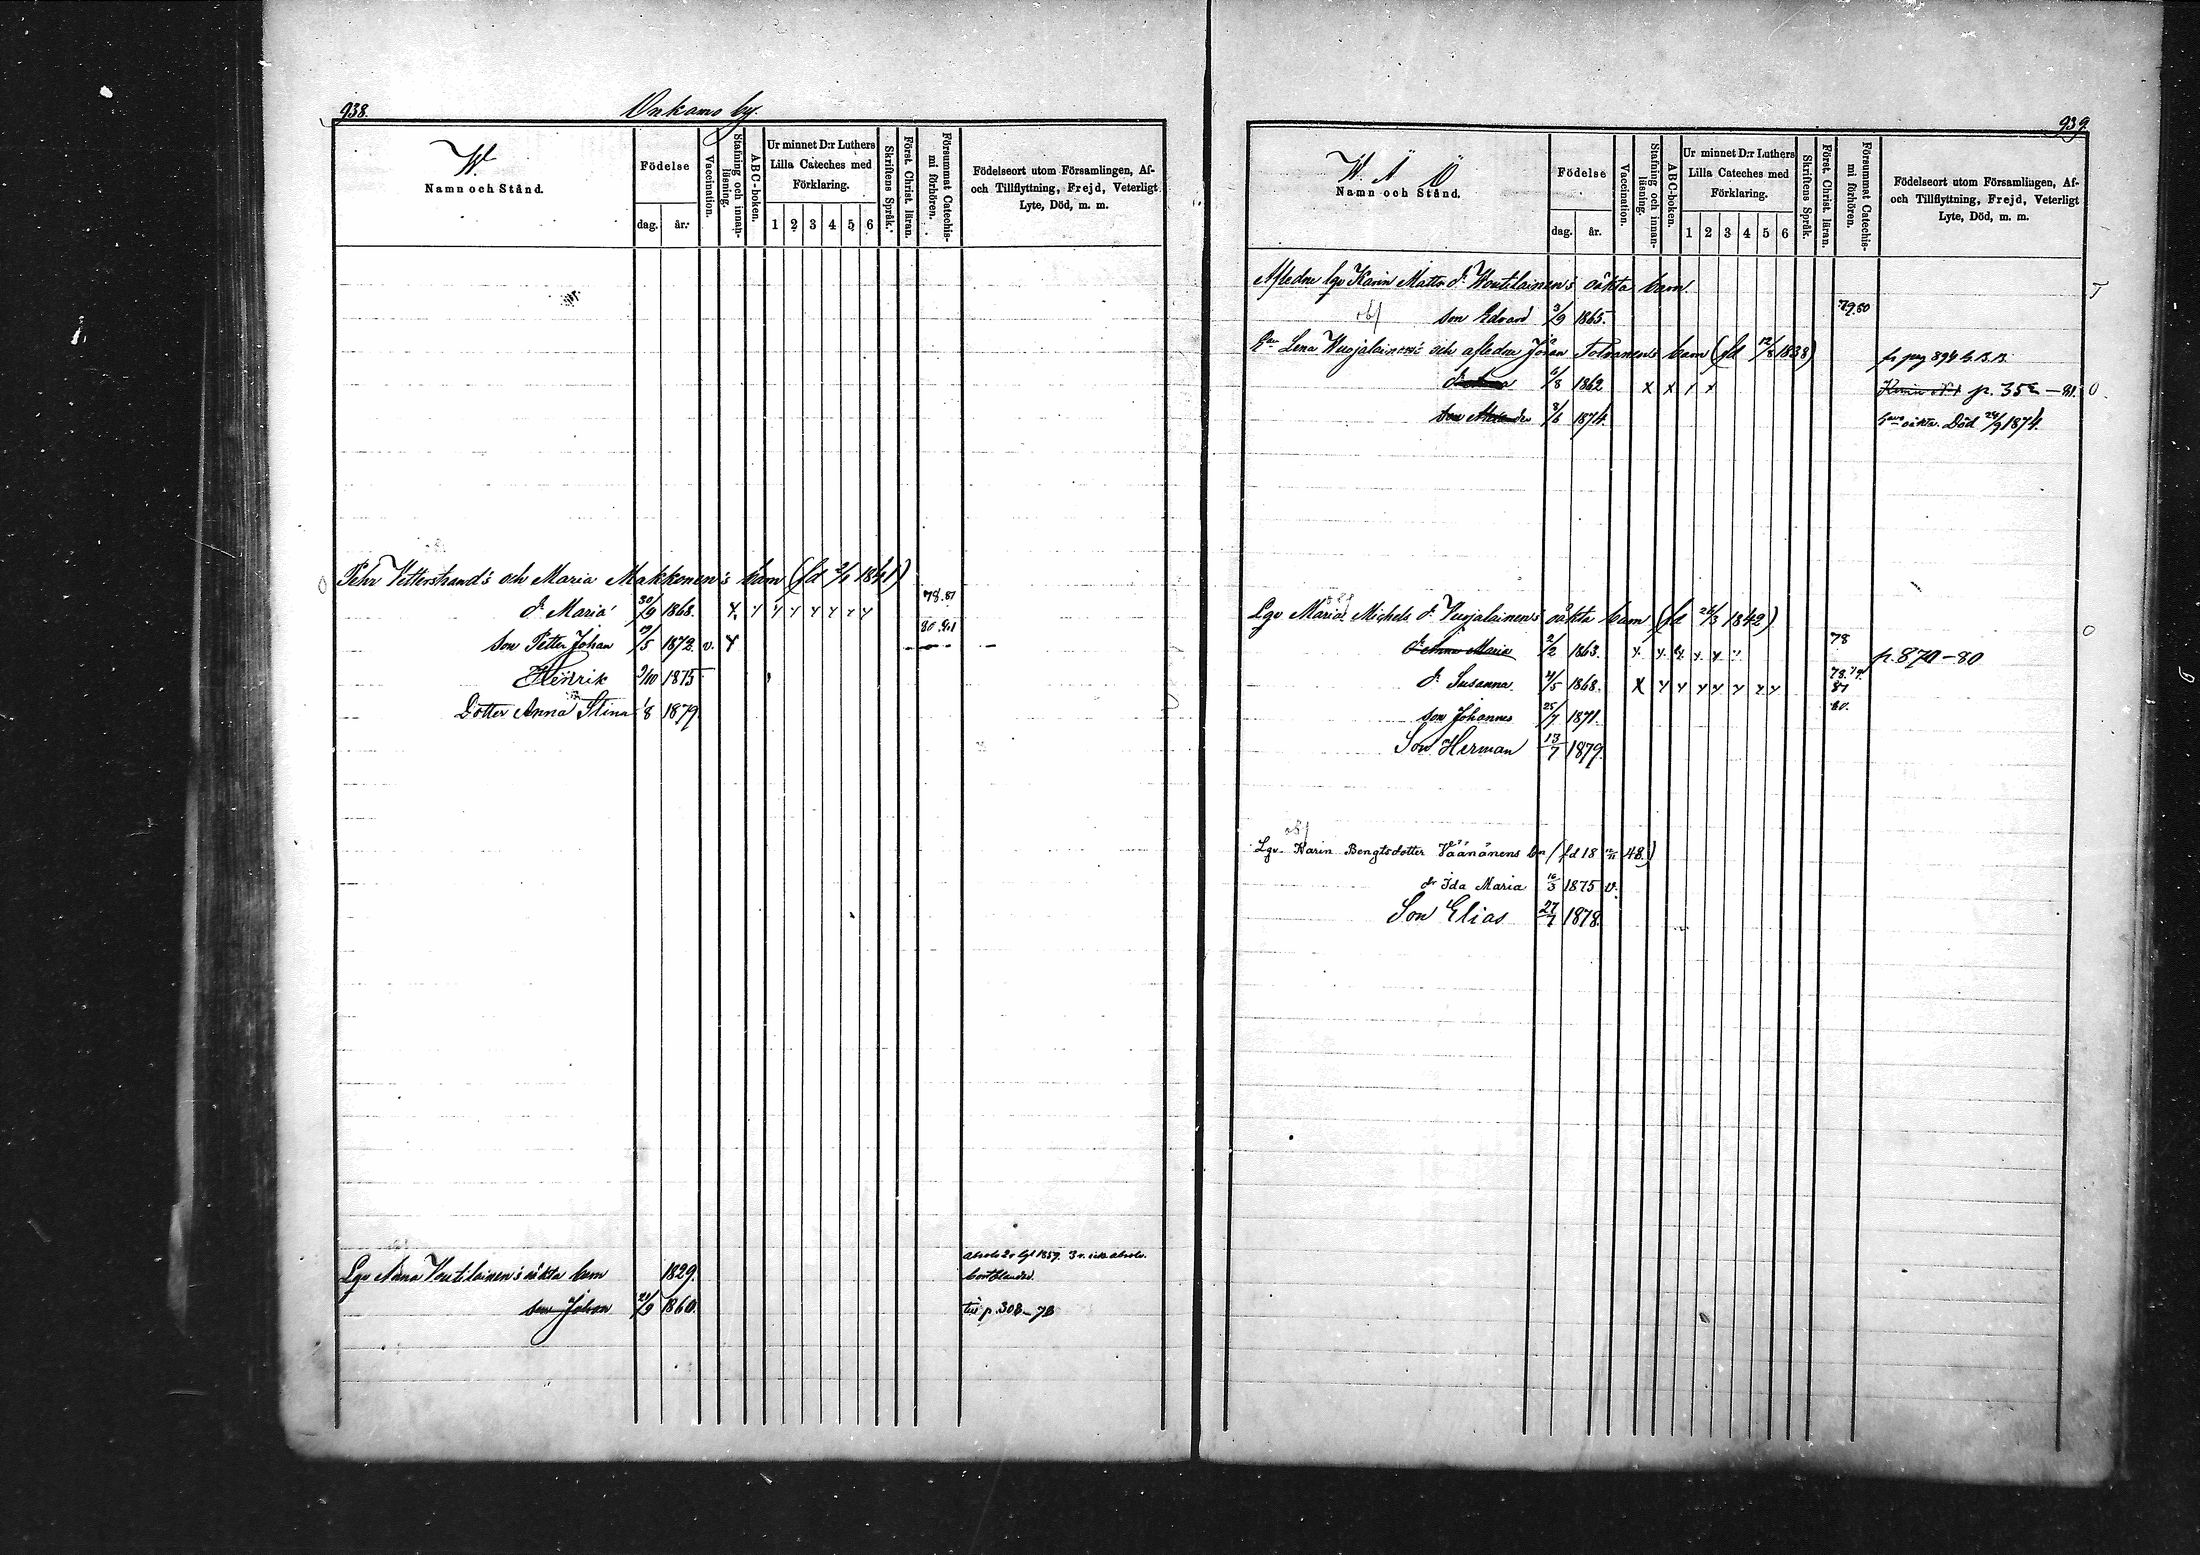 938.
Onkamo by.
W.
Namn och Stånd.
Födelse
dag. år.
Vaccination.
Stafning och innanläsning.
ABC-boken.
Ur minnet D:r Luthers Lilla Cateches med Förklaring.
1 2 3 4 5 6
Skriftens Språk.
Först. Christ. läran.
Försummat Catechismi förhören.
Födelseort utom Församlingen, Af- och Tillflyttning, Frejd, Veterligt Lyte, Död, m. m.
Pehr Vetterstrand's och Maria Makkonen's barn (fd 2/1 1841)
dr Maria 30/9 1868. 78.81
son Petter Johan 19/5 1872. v. 80.81
Henrik 9/10 1875
Dotter Anna Stina 1/8 1879
absolv. 2r lgl 1859. 3 r. icke absolv.
Lgv Anna Voutilainen's oäkta barn 1829.
son Johan 21/9 1860. till p. 308-78
939.
W. Ä Ö
Namn och Stånd.
Födelse
dag. år.
Vaccination.
Stafning och innanläsning.
ABC-boken.
Ur minnet D:r Luthers Lilla Cateches med Förklaring.
1 2 3 4 5 6
Skriftens Språk.
Först. Christ. läran.
Försummat Catechismi förhören.
Födelseort utom Församlingen, Af- och Tillflyttning, Frejd, Veterligt Lyte, Död, m. m.
Afledne lgv Karin Matts d. Woutilainen's oäkta barn.
obf son Edvard 3/9 1865. 79.80
Lena Wuojalainen's och afledne Jöran Tolvanen's barn (fd 12/8 1838) fr pag 894 k. B. B.
6/8 1862 x x x x p. 352-81. O.
son Alexander 8/6 1874. oäkta. Död 24/9 1874.
Lgv Maria Michels d. Vuojalainen's oäkta barn (fd 26/3 1842)
d. Anna Maria 2/2 1863. 78 p. 870-80
d. Susanna 21/5 1868. 78.79. 81
son Johannes 25/7 1871. 80.
Son Herman 13/7 1879.
obf
Lgv. Karin Bengtsdotter Väänänens bn (fd 18 48.)
dr Ida Maria 16/3 1875 v.
Son Elias 27/7 1878.